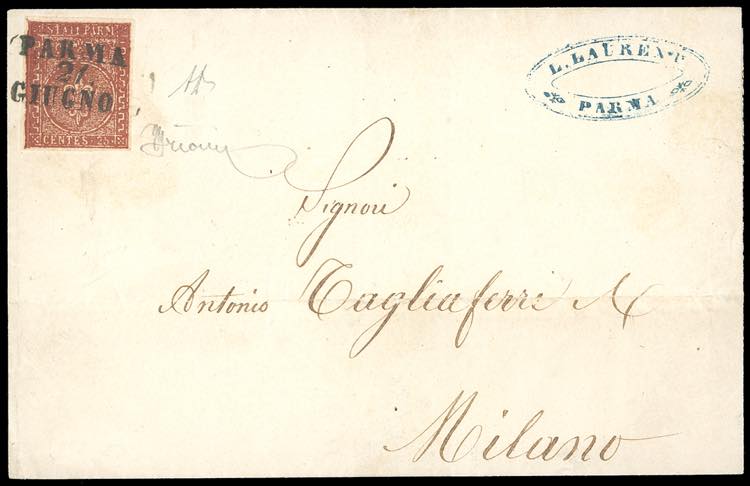 STATI PARM.
PARMA
21
GIUGNO
CENTES. 25
L. LAURENT
PARMA
Signori
Antonio Tagliaferri
Milano